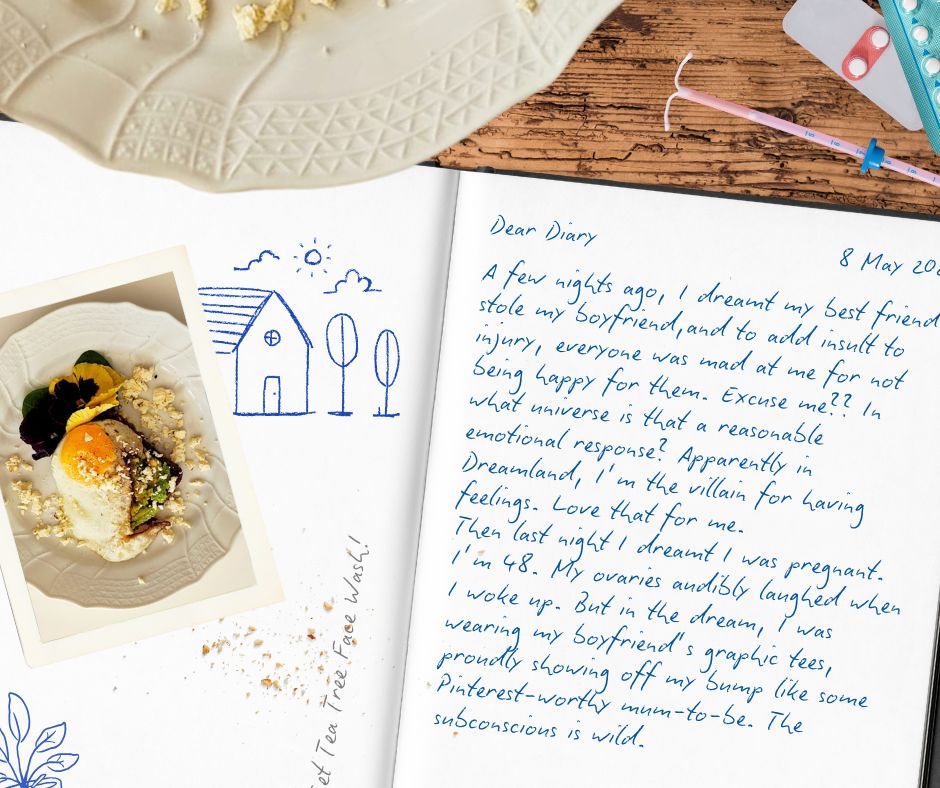 Dear Diary
8 May 20
A few nights ago, I dreamt my best friend
stole my boyfriend, and to add insult to
injury, everyone was mad at me for not
being happy for them. Excuse me?? In
what universe is that a reasonable
emotional response? Apparently in
Dreamland, I'm the villain for having
feelings. Love that for me.
Then last night I dreamt I was pregnant.
I'm 48. My ovaries audibly laughed when
I woke up. But in the dream, I was
wearing my boyfriend's graphic tees,
proudly showing off my bump like some
Pinterest-worthy mum-to-be. The
subconscious is wild.
Tea Tree Face Wash!